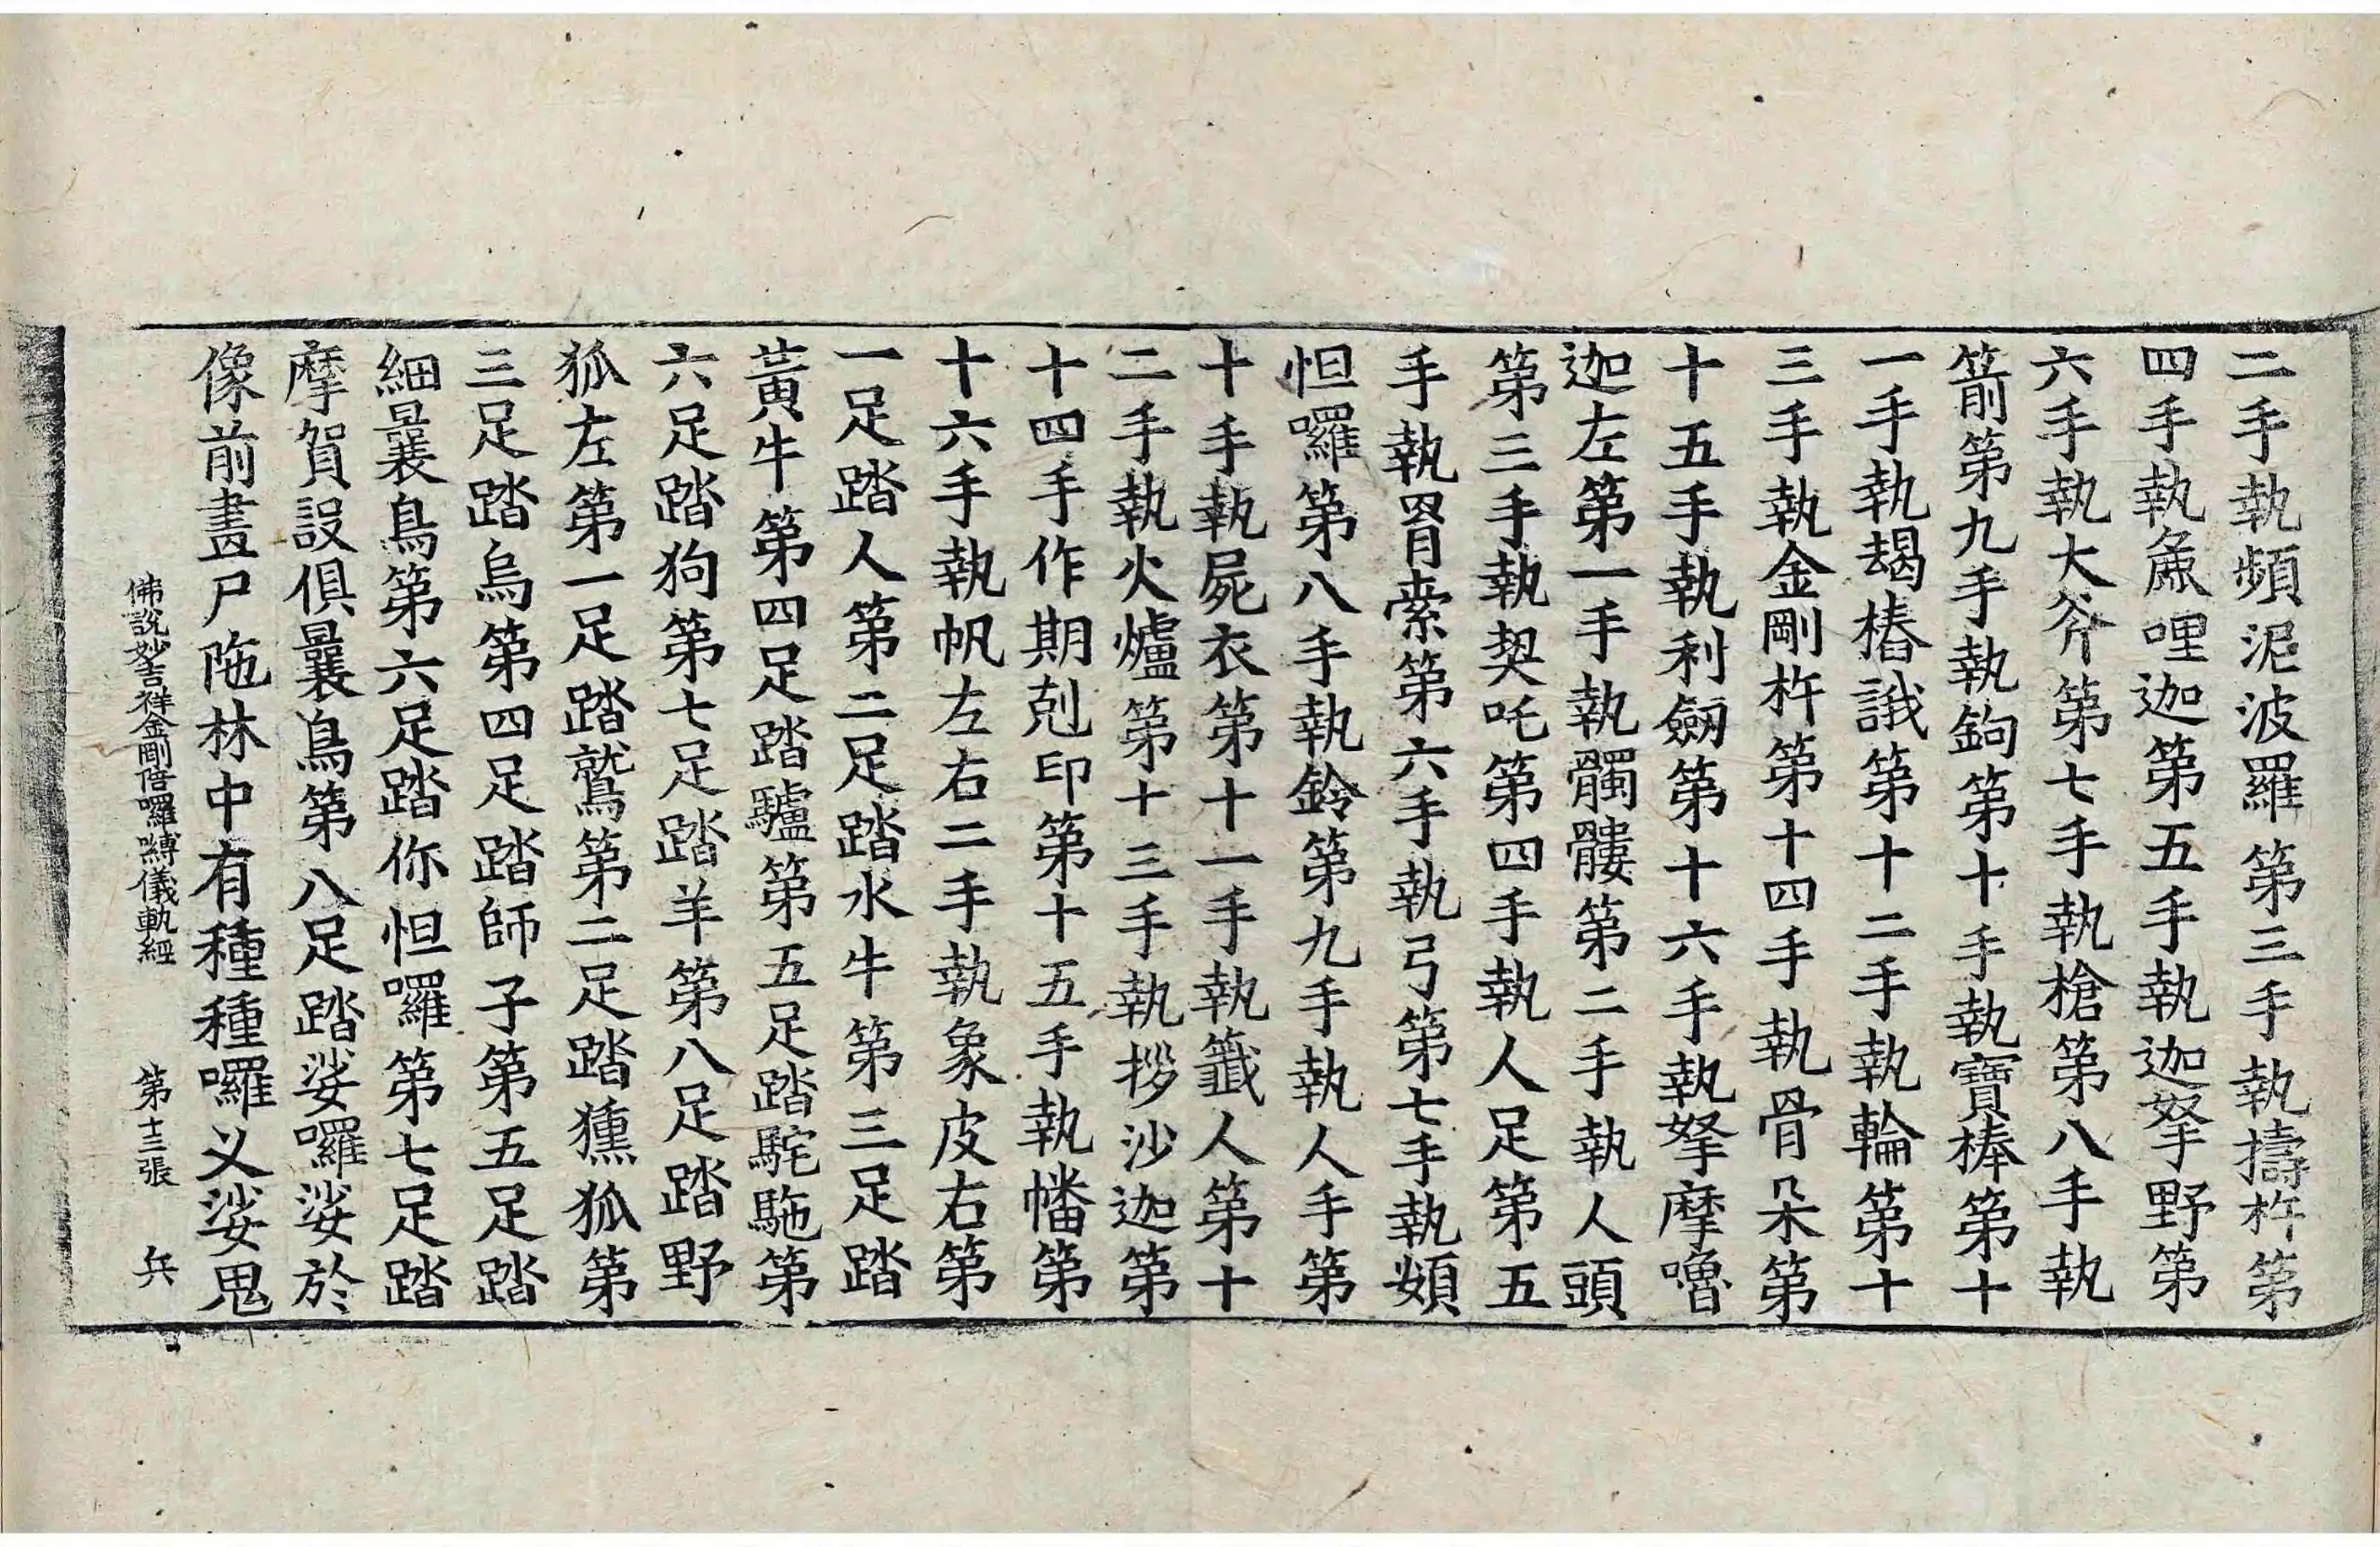 二手執頻泥波羅第三手執擣杵第
四手執䱉哩迦第五手執迦拏野第
六手執大斧第七手執槍第八手執
箭第九手執鉤第十手執寶棒第十
一手執朅樁誐第十二手執輪第十
三手執金剛杵第十四手執骨朵第
十五手執利劒第十六手執拏摩嚕
迦左第一手執髑髏第二手執人頭
第三手執契吒第四手執人足第五
手執罥索第六手執弓第七手執頞
怛囉第八手執鈴第九手執人手第
十手執屍衣第十一手執籤人第十
二手執火爐第十三手執拶沙迦第
十四手作期剋印第十五手執幡第
十六手執帆左右二手執象皮右第
一足踏人第二足踏水牛第三足踏
黃牛第四足踏驢第五足踏駝第
六足踏狗第七足踏羊第八足踏野
狐左第一足踏鷲第二足踏獯狐第
三足踏烏第四足踏師子第五足踏
細曩鳥第六足踏你怛囉第七足踏
摩賀設俱曩鳥第八足踏娑囉娑於
像前畫尸陁林中有種種囉义娑鬼
佛說妙吉祥金剛倍囉嚩儀軌經 第十三張 兵